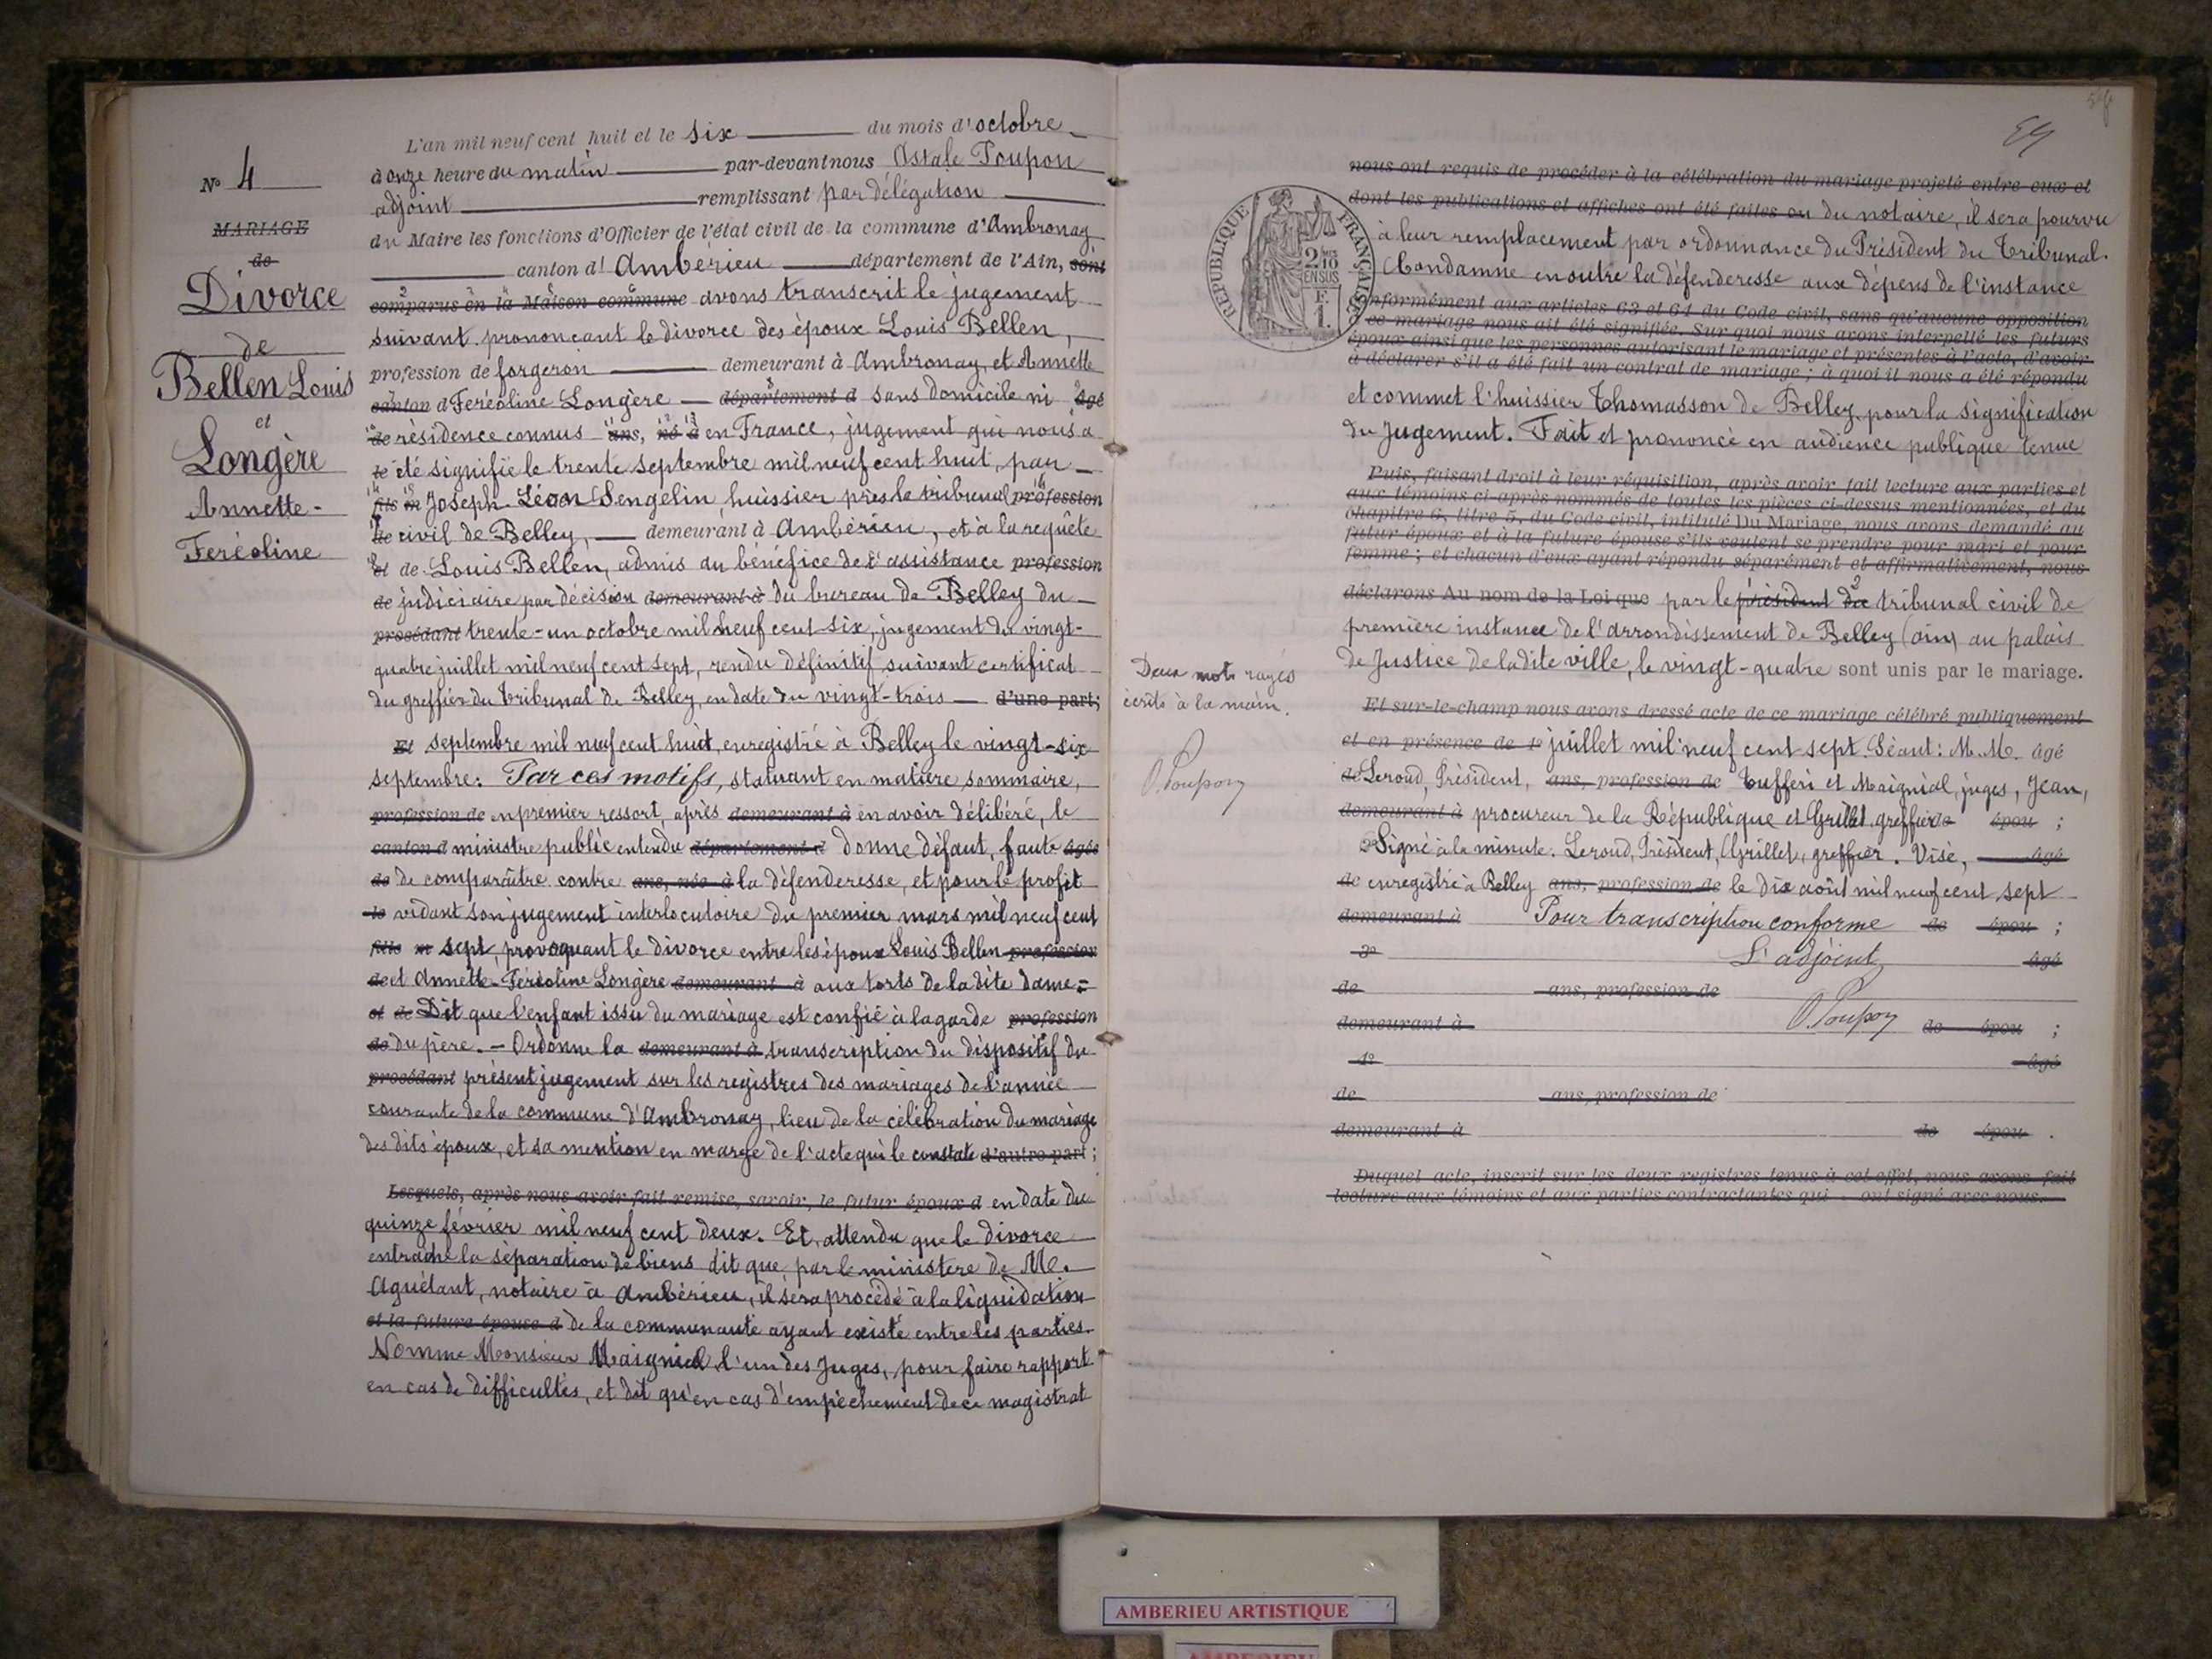 N° 4
MARIAGE
de
Divorce
de
Bellen Louis
et
Longère
Annette-
Feréoline
L'an mil neuf cent huit et le six du mois d'octobre
à onze heure du matin par-devant nous Astale Poupon
adjoint remplissant par délégation
du Maire les fonctions d'Officier de l'état civil de la commune d'Ambronay
canton d'Ambérieu département de l'Ain, sont
comparus en la Maison commune avons transcrit le jugement
suivant prononcant le divorce des époux Louis Bellen,
profession de forgeron demeurant à Ambronay, et Annette
canton d Feréoline Longère département d sans domicile ni âgé
de résidence connus ans, né à en France, jugement qui nous a
le été signifié le trente septembre mil neuf cent huit, par
fils m Joseph Léon Sengelin, huissier près le tribunal profession
de civil de Belley, demeurant à Ambérieu, et à la requête
et de Louis Bellen, admis au bénéfice de l'assistance profession
de judiciaire par décision demeurant à du bureau de Belley du
procédant trente-un octobre mil neuf cent six, jugement du vingt-
quatre juillet mil neuf cent sept, rendu définitif suivant certificat
du greffier du tribunal de Belley, en date du vingt-trois d'une part;
Et septembre mil neuf cent huit, enregistré à Belley le vingt-six
septembre: Par ces motifs, statuant en matière sommaire,
profession de en premier ressort, après demeurant à en avoir délibéré, le
canton d ministre public entendu département d donne défaut, faute âgée
de de comparaître contre ans, née à la défenderesse, et pour le profit
le vidant son jugement interlocutoire du premier mars mil neuf cent
fille m sept, provoquant le divorce entre les époux Louis Bellen profession
de et Annette-Feréoline Longère demeurant à aux torts de la dite dame=
et de Dit que l'enfant issu du mariage est confié à la garde profession
de du père. - Ordonne la demeurant à transcription du dispositif du
procédant présent jugement sur les registres des mariages de l'année
courante de la commune d'Ambronay, lieu de la célébration du mariage
des dits époux, et sa mention en marge de l'acte qui le constate d'autre part;
Lesquels, après nous avoir fait remise, savoir, le futur époux d en date du
quinze février mil neuf cent deux. Et attendu que le divorce
entraîne la séparation de biens dit que par le ministère de Me.
Aguétant, notaire à Ambérieu, il sera procédé à la liquidation
et la future épouse d de la communauté ayant existé entre les parties.
Nomme Monsieur Maigniol l'un des Juges, pour faire rapport
en cas de difficultés, et dit qu'en cas d'empêchement de ce magistrat
59
nous ont requis de procéder à la célébration du mariage projeté entre eux et
dont les publications et affiches ont été faites ou du notaire, il sera pourvu
à leur remplacement par ordonnance du Président du Tribunal.
Condamne en outre la défenderesse aux dépens de l'instance
conformément aux articles 63 et 64 du Code civil, sans qu'aucune opposition
à ce mariage nous ait été signifiée. Sur quoi nous avons interpellé les futurs
époux ainsi que les personnes autorisant le mariage et présentes à l'acte, d'avoir
à déclarer s'il a été fait un contrat de mariage; à quoi il nous a été répondu
et commet l'huissier Thomasson de Belley pour la signification
du Jugement. Fait et prononcé en audience publique tenue
Puis, faisant droit à leur réquisition, après avoir fait lecture aux parties et
aux témoins ci-après nommés de toutes les pièces ci-dessus mentionnées, et du
chapitre 6, titre 5, du Code civil, intitulé Du Mariage, nous avons demandé au
futur époux et à la future épouse s'ils veulent se prendre pour mari et pour
femme; et chacun d'eux ayant répondu séparément et affirmativement, nous
déclarons Au nom de la Loi que par le président du tribunal civil de
première instance de l'arrondissement de Belley (ain) au palais
de Justice de ladite ville, le vingt-quatre sont unis par le mariage.
Et sur-le-champ nous avons dressé acte de ce mariage célébré publiquement
et en présence de 1° juillet mil neuf cent sept. Séant: M.M. âgé
de Leroud, Président, ans, profession de Tufferi et Maigniol, juges, Jean,
demeurant à procureur de la République et Grillet greffier de épou ;
2° Signé à la minute. Leroud, Président, Grillet, greffier. Visé, âgé
de enregistré à Belley ans, profession de le dix août mil neuf cent sept
demeurant à Pour transcription conforme de épou ;
3° L'adjoint, âgé
de ans, profession de
demeurant à O. Poupon de épou ;
4° âgé
de ans, profession de
demeurant à de épou .
Duquel acte, inscrit sur les deux registres tenus à cet effet, nous avons fait
lecture aux témoins et aux parties contractantes qui ont signé avec nous.
Deux mots rayés
écrits à la main.
O. Poupon
RÉPUBLIQUE FRANÇAISE
2/10
EN SUS
F.
1.
AMBERIEU ARTISTIQUE
AMBERIEU